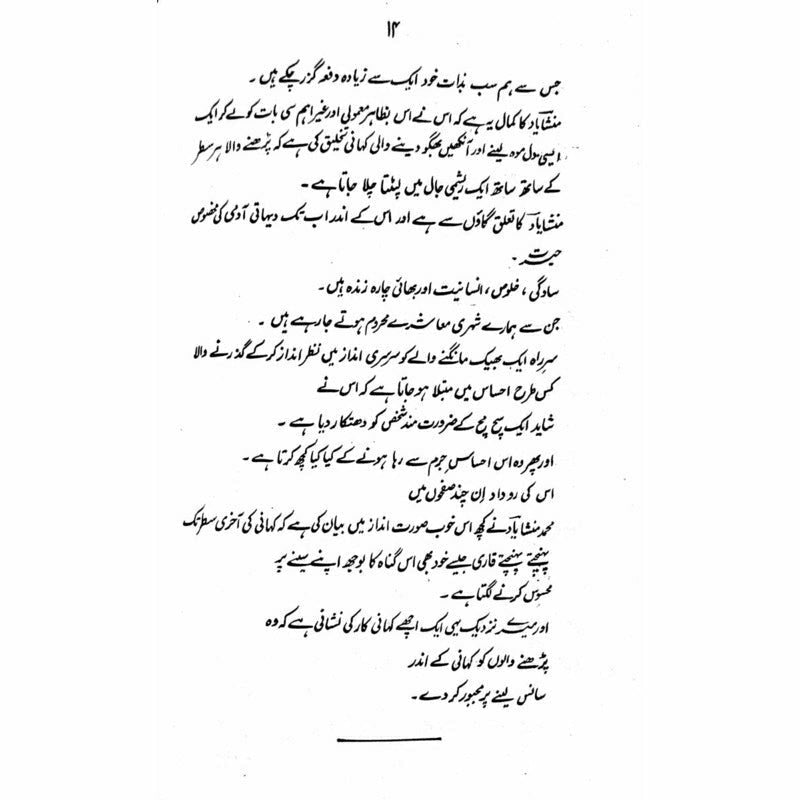 ۱۴
جس سے ہم سب بذات خود ایک سے زیادہ دفعہ گزر چکے ہیں ۔
منشایاد کا کمال یہ ہے کہ اس نے اس بظاہر معمولی اور غیر اہم سی بات کو لے کر ایک
ایسی دل موہ لینے اور آنکھیں بھگو دینے والی کہانی تخلیق کی ہے کہ پڑھنے والا ہر سطر
کے ساتھ ساتھ ایک ریشمی جال میں لپٹتا چلا جاتا ہے ۔
منشایاد کا تعلق گاؤں سے ہے اور اس کے اندر اب تک دیہاتی آدمی کی مخصوص
حیرت ۔
سادگی ، خلوص ، انسانیت اور بھائی چارہ زندہ ہیں ۔
جن سے ہمارے شہری معاشرے محروم ہوتے جا رہے ہیں ۔
سرِراہ ایک بھیک مانگنے والے کو سرسری انداز میں نظر انداز کر کے گذرنے والا
کس طرح احساس میں مبتلا ہو جاتا ہے کہ اس نے
شاید ایک سچ مچ کے ضرورت مند شخص کو دھتکار دیا ہے ۔
اور پھر وہ اس احساسِ جرم سے رہا ہونے کے کیا کیا کچھ کرتا ہے ۔
اس کی روداد اِن چند صفحوں میں
محمد منشایاد نے کچھ اس خوب صورت انداز میں بیان کی ہے کہ کہانی کی آخری سطر تک
پہنچتے پہنچتے قاری جیسے خود بھی اس گناہ کا بوجھ اپنے سینے پر
محسوس کرنے لگتا ہے ۔
اور میرے نزدیک یہی ایک اچھے کہانی کار کی نشانی ہے کہ وہ
پڑھنے والوں کو کہانی کے اندر
سانس لینے پر مجبور کر دے ۔